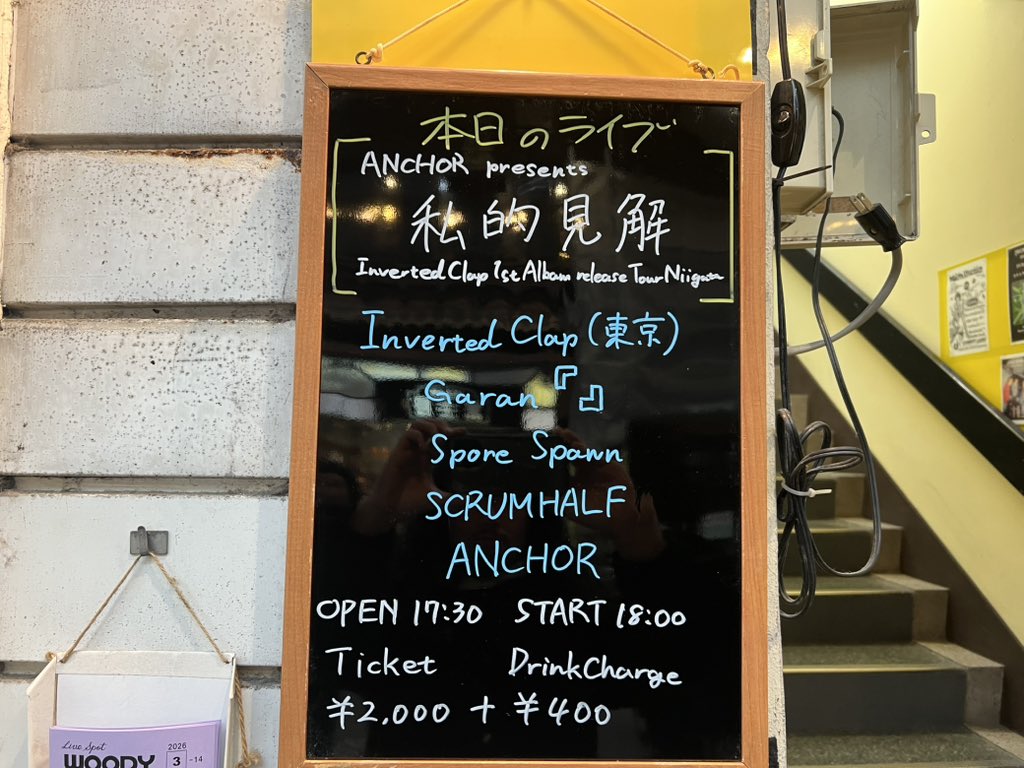 本日のライブ
ANCHOR presents
私的見解
Inverted Clap 1st Album release Tour Niigata
Inverted Clap (東京)
Garan『』
Spore Spawn
SCRUMHALF
ANCHOR
OPEN 17:30 START 18:00
Ticket DrinkCharge
¥2,000 + ¥400
Live Spot
WOODY
2026
3 -14